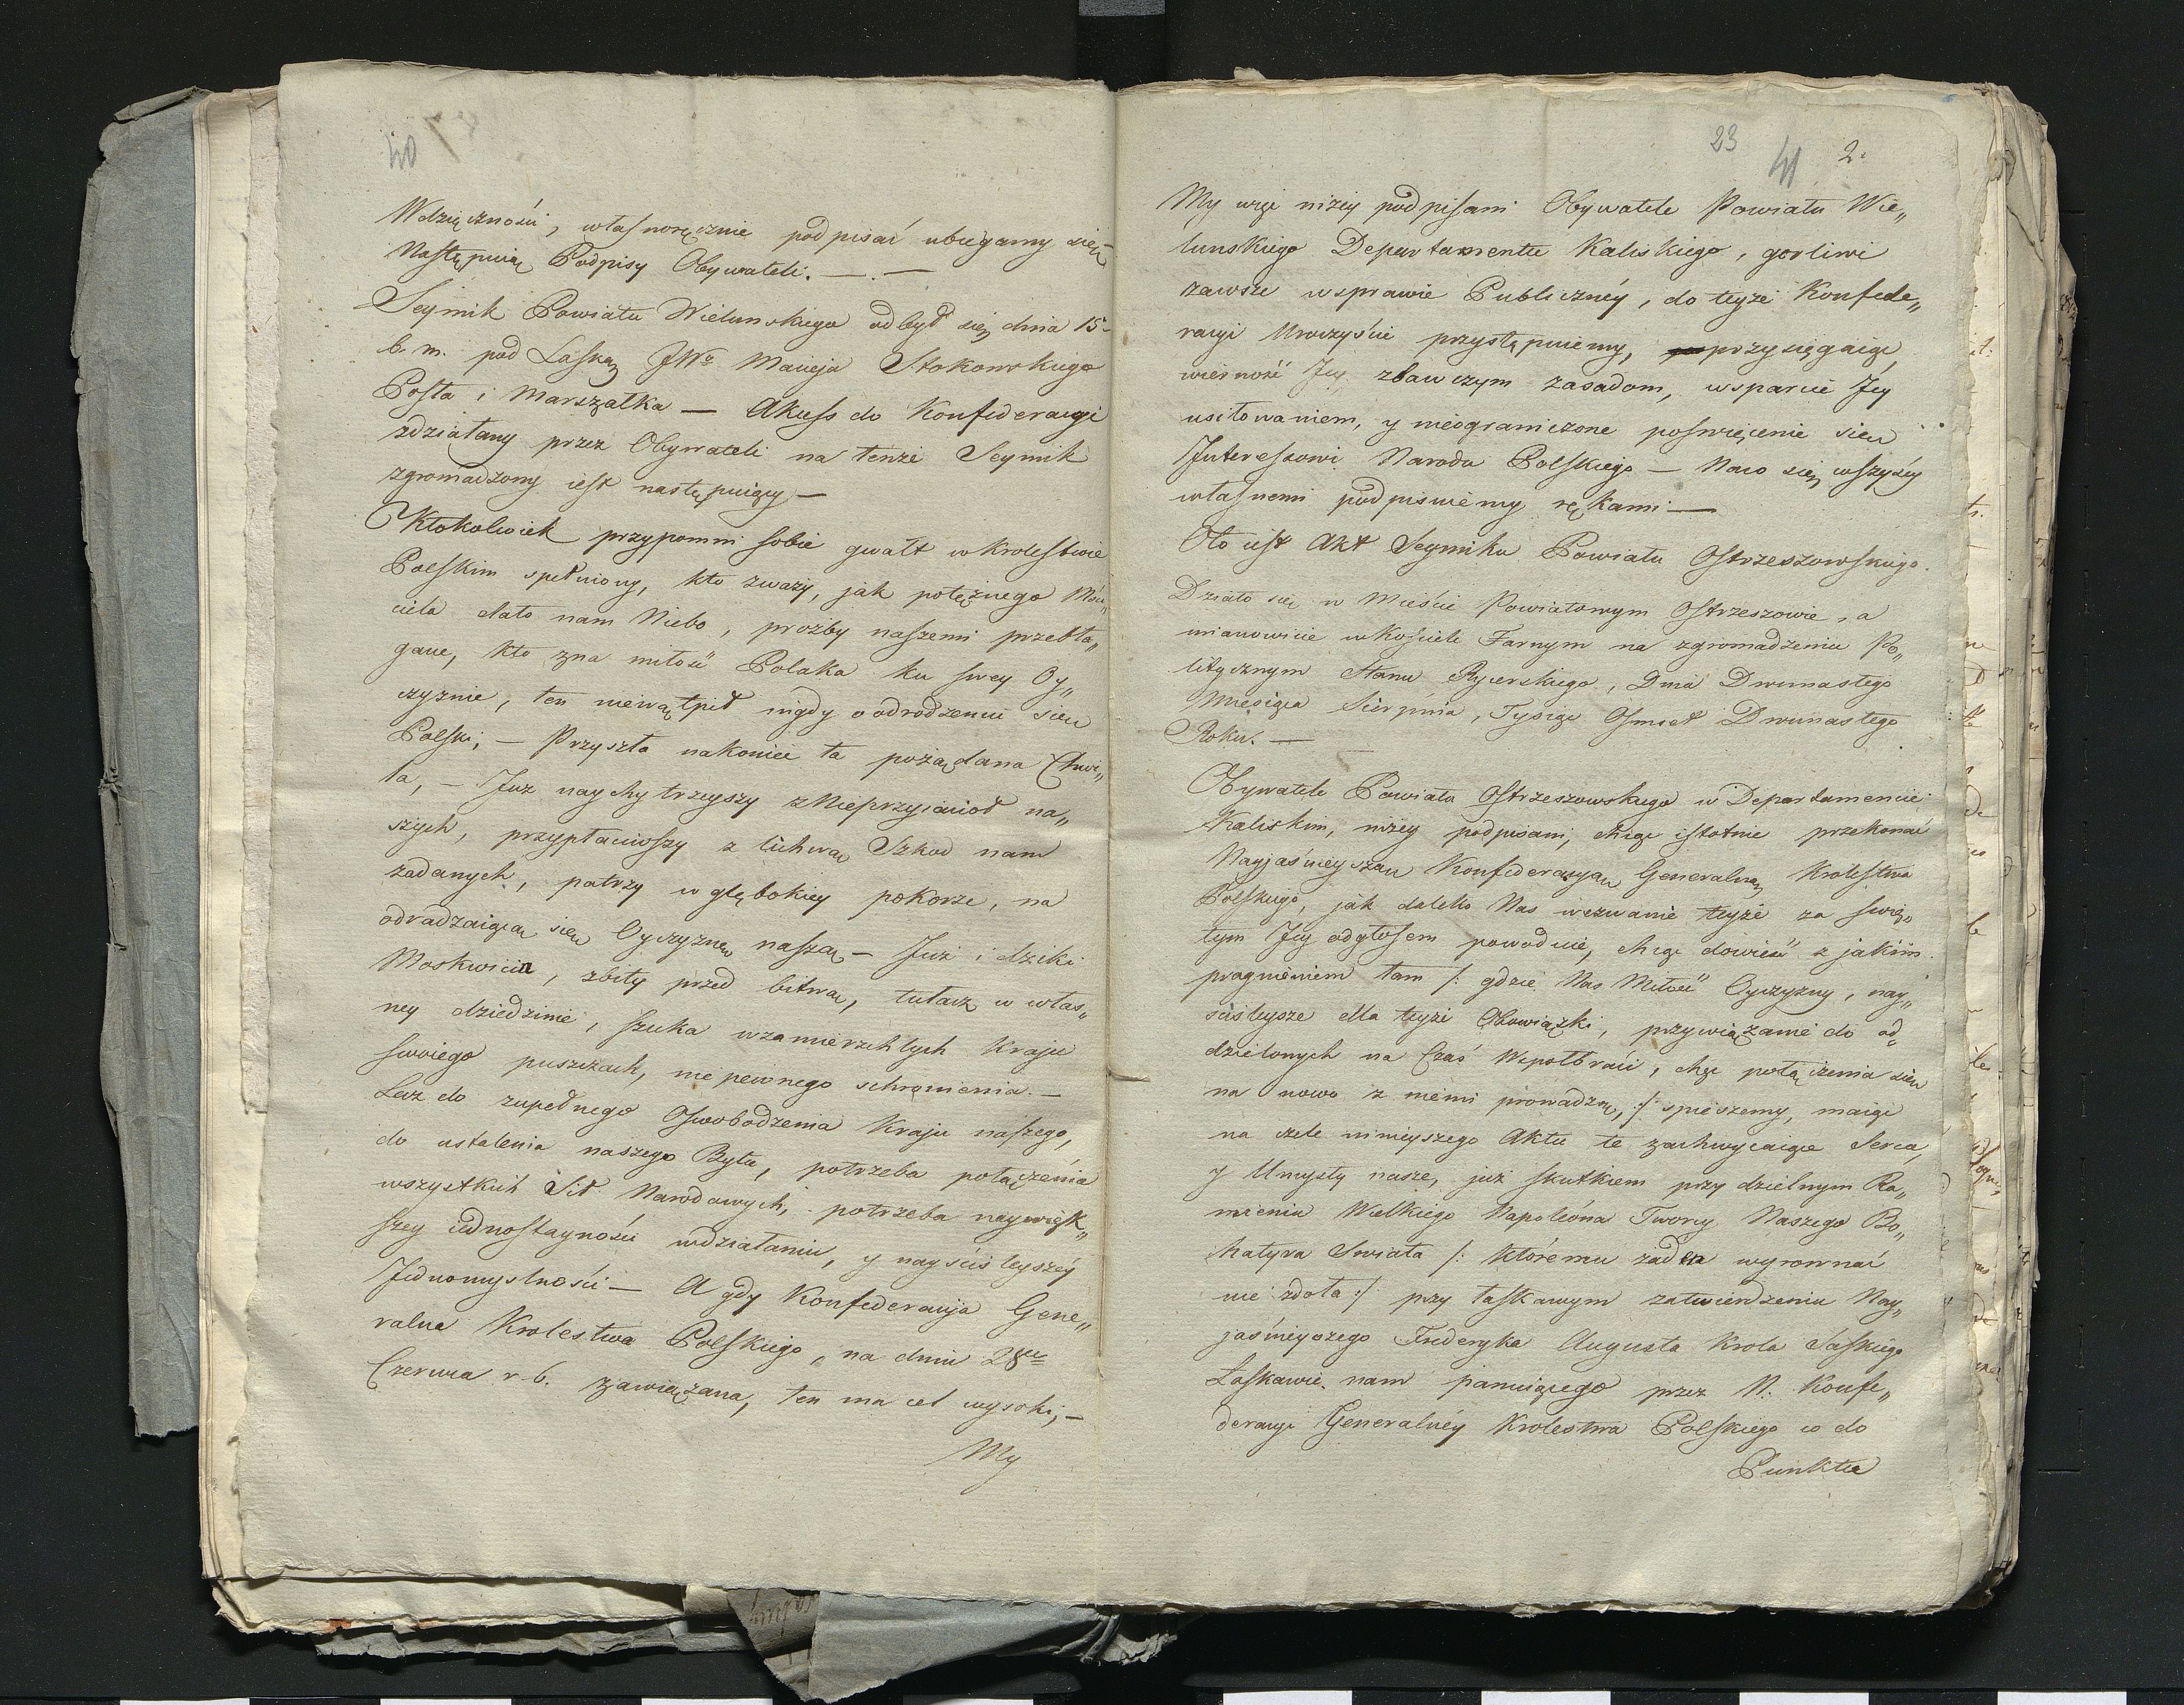 40
Wdzięczności, własnoręcznie podpisać ubiegamy się
Następuią Podpisy Obywateli. — . —
Seymik Powiatu Wielunskiego odbył się dnia 15.
b. m. pod Laską JWo Macieja Stokowskiego
Posła i Marszałka — Akcess do Konfederacyi
zdziałany przez Obywateli na tenże Seymik
zgromadzony iest następuiący —
Ktokolwiek przypomni sobie gwałt w Krolestwie
Polskim spełniony, kto zważy, jak potężnego Mści„
ciela dało nam Niebo, prozby naszemi przebła„
gane, kto zna miłość Polaka ku swey Oy„
czyznie, ten niewątpił nigdy o odrodzeniu się
Polski; — Przyszła nakoniec ta pożądana Chwi„
la, — Juz naychytrzeyszy z Nieprzyiacioł na„
szych, przypłaciwszy z lichwą Szkod nam
zadanych, patrzy w głębokiey pokorze, na
odradzaiącą się Oyczyznę naszą — Juz i dziki
Moskwicin, zbity przed bitwą, tułacz w włas„
ney dziedzinie, szuka w zamierzchłych Kraju
swoiego puszczach, niepewnego schronienia. —
Lecz do zupełnego Oswobodzenia Kraju naszego,
do ustalenia naszego Bytu, potrzeba połączenia
wszystkich Sił Narodowych, potrzeba naywięk„
szey iednostayności w działaniu, y nayściśleyszéy
Jednomyslności — A gdy Konfederacyja Gene„
ralna Krolestwa Polskiego, na dniu 28
Czerwca r. b. zawiązana, ten ma cel wysoki; —
My
23 41 2.
My więc niżey podpisani Obywatele Powiatu Wie„
lunskiego Departamentu Kaliskiego, gorliwi
zawsze w sprawie Publicznéy, do teyże Konfede„
racyi Uroczyście przystępuiemy, przysięgaiąc
wierność Jey zbawczym zasadom, wsparcie Jey
usiłowaniem, y nieograniczone poswięcenie się
Interessowi Narodu Polskiego — Na co się wszyscy
własnemi podpisuiemy rękami —
Oto iest Akt Seymiku Powiatu Ostrzeszowskiego.
Działo się w Mieście Powiatowym Ostrzeszowie, a
mianowicie w Kościele Farnym na zgromadzeniu Po„
litycznym Stanu Rycerskiego, Dnia Dwunastego
Miesiąca Sierpnia, Tysiąc Osmset Dwunastego
Roku. —
Obywatele Powiatu Ostrzeszowskiego w Departamencie
Kaliskim, niżey podpisani, chcąc istotnie przekonać
Nayjaśnieyszą Konfederacyą Generalną Krolestwa
Polskiego, jak daleko Nas wezwanie teyże za świę„
tym Jey odgłosem powoduie, chcąc dowieść z jakiim
pragnieniem tam /: gdzie Nas Miłość Oyczyzny, nay„
ściśleysze dla teyże Obowiązki, przywiązanie do od„
dzielonych na Czas Wspołbraci, chęć połączenia się
na nowo z niemi prowadzą, :/ spieszemy, maiąc
na czele ninieyszego Aktu te zachwycaiące Serca,
y Umysły nasze, już skutkiem przy dzielnym Ra„
mieniu Wielkiego Napoleóna Tworcy Naszego Bo„
hatyra Swiata /: któremu żaden wyrownać
nie zdoła :/ przy łaskawym zatwierdzeniu Nay„
jaśnieyszego Fryderyka Augusta Krola Saskiego
Łaskawie nam panuiącego przez N. Konfe„
deracyi Generalnéy Krolestwa Polskiego co do
Punktu